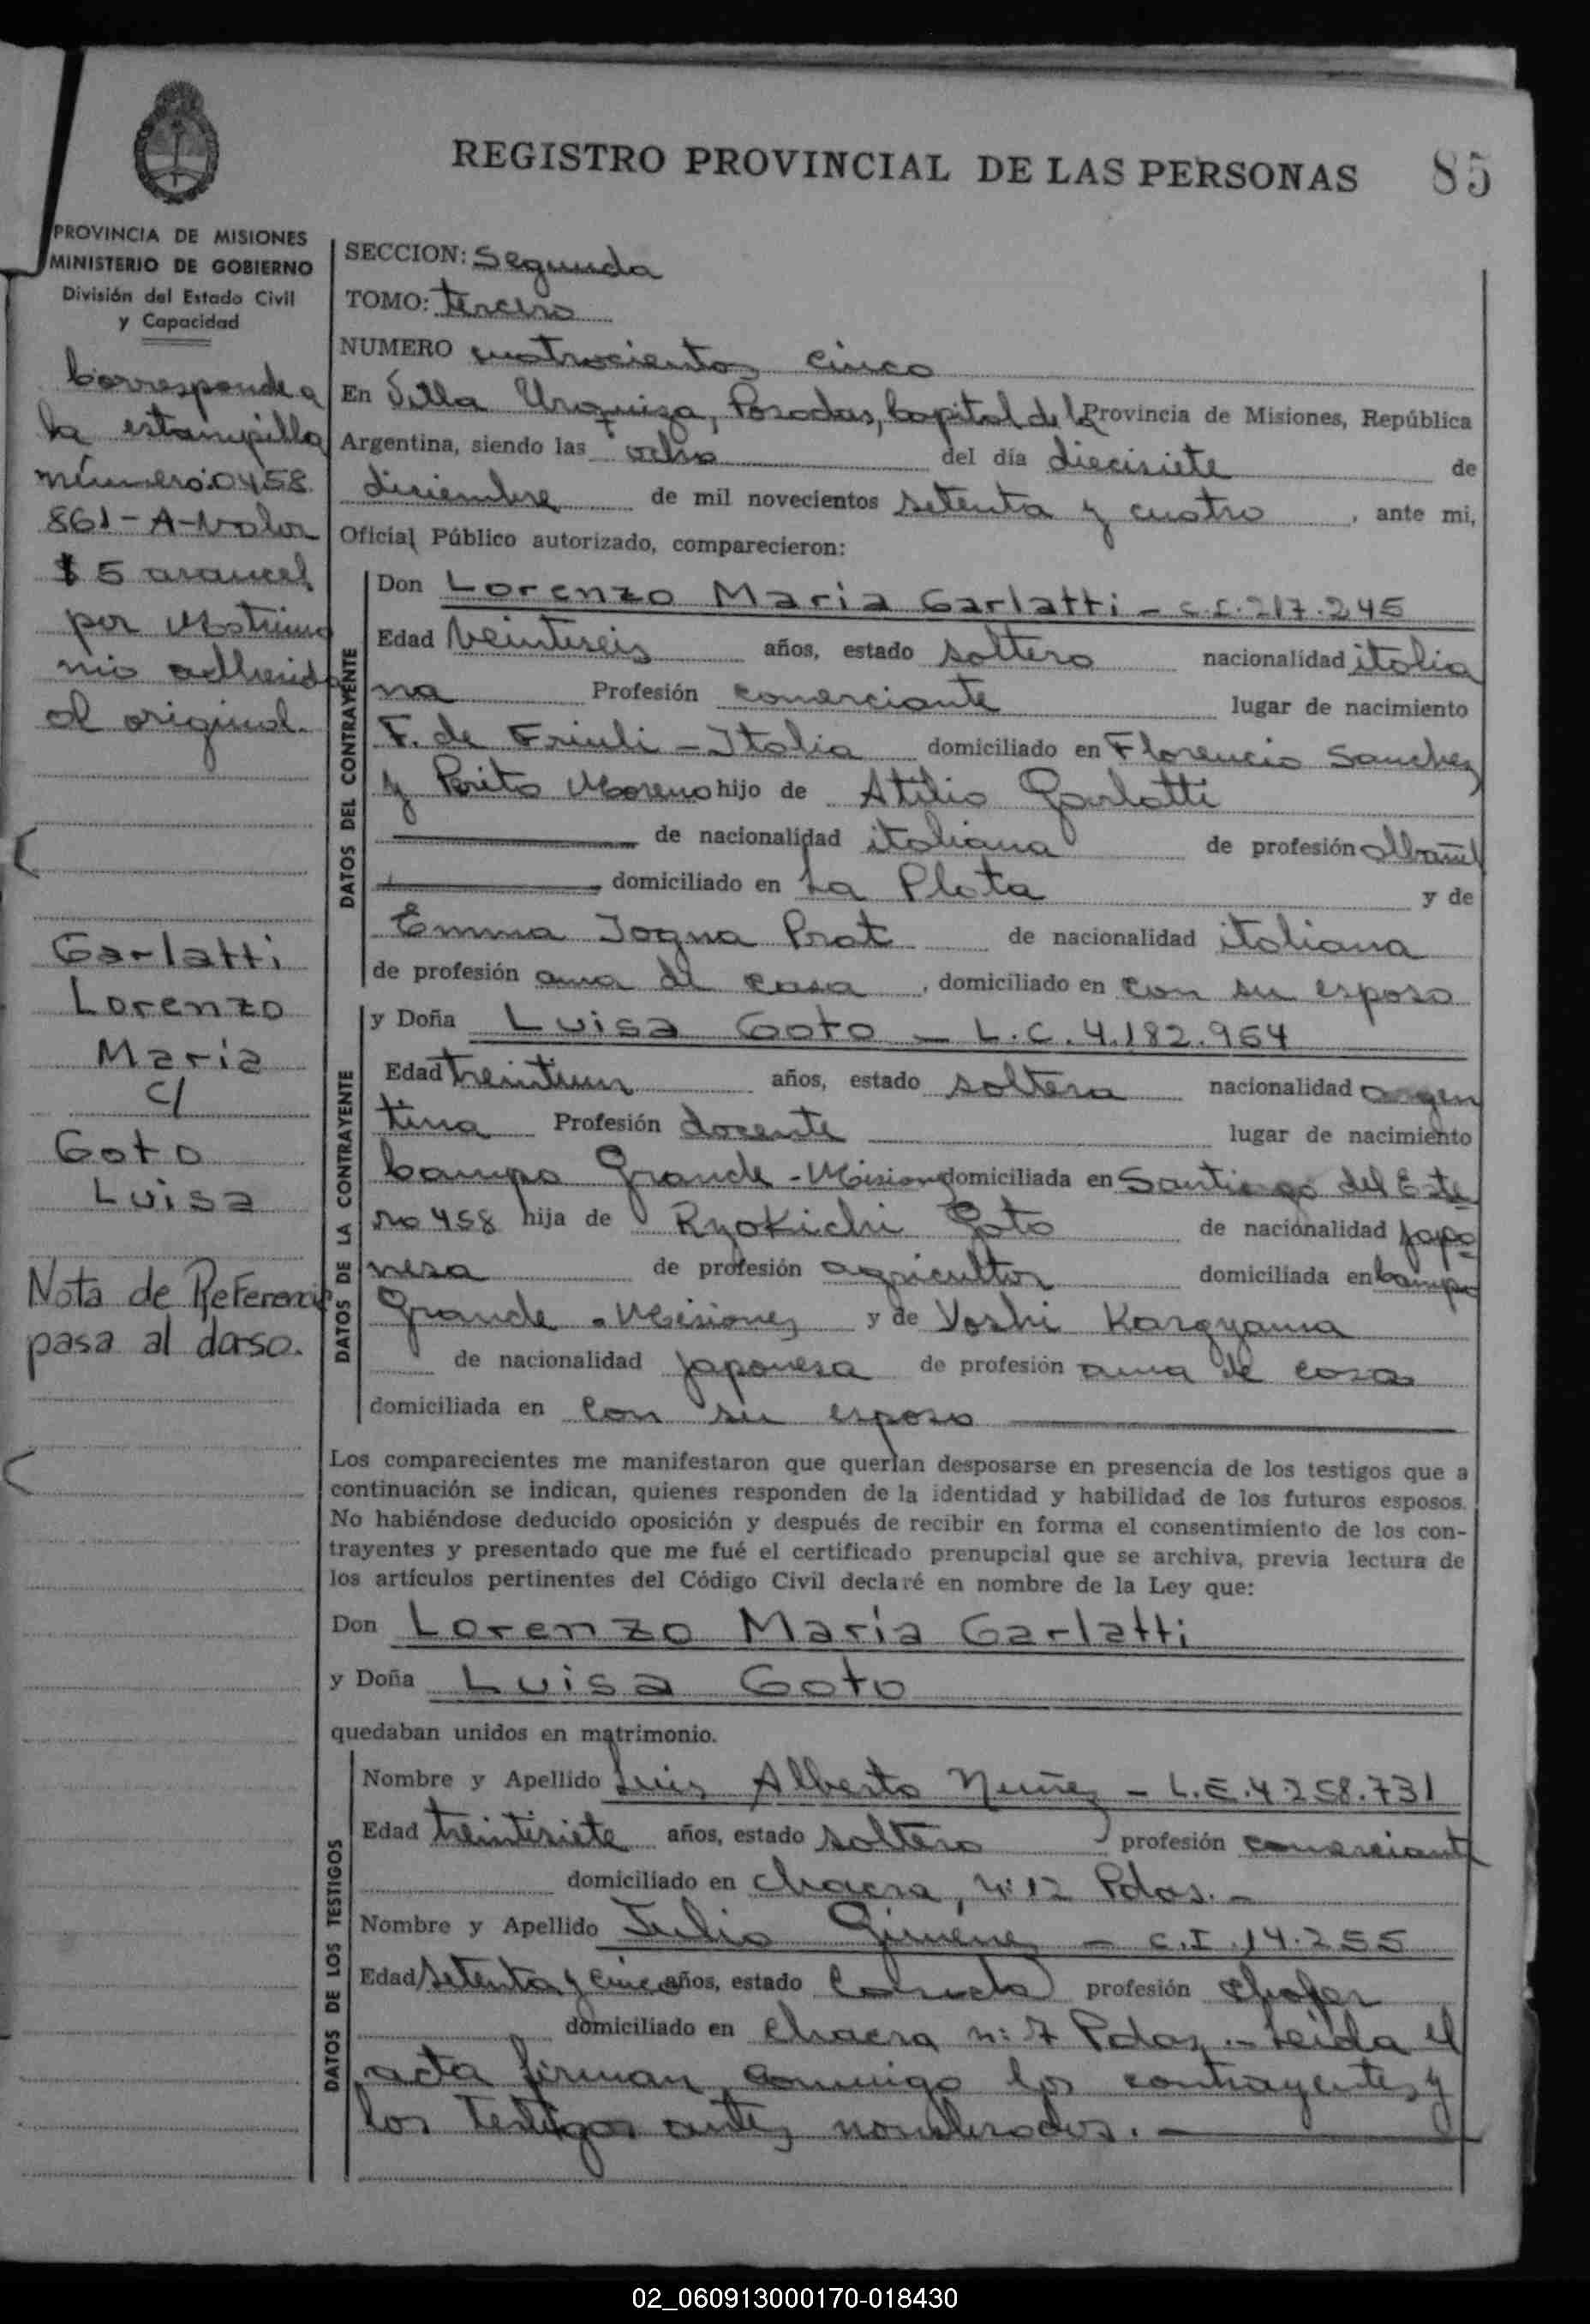 REGISTRO PROVINCIAL DE LAS PERSONAS 85
PROVINCIA DE MISIONES
MINISTERIO DE GOBIERNO
División del Estado Civil
y Capacidad
Corresponde a
la estampilla
número: 0458
861-A-Valor
$5 arancel
por Matrimo
nio adherido
al original.
Garlatti
Lorenzo
Maria
c/
Goto
Luisa
Nota de Referencia
pasa al dorso.
SECCION: Segunda
TOMO: Tercero
NUMERO cuatrocientos cinco
En Villa Urquiza, Posadas, Capital de la Provincia de Misiones, República
Argentina, siendo las ocho del día diecisiete de
diciembre de mil novecientos setenta y cuatro, ante mi,
Oficial Público autorizado, comparecieron:
DATOS DEL CONTRAYENTE
Don Lorenzo Maria Garlatti - C.I. 217.245
Edad veinteseis años, estado soltero nacionalidad italia
na Profesión comerciante lugar de nacimiento
F. de Friuli - Italia domiciliado en Florencio Sanchez
y Perito Moreno hijo de Atilio Garlatti
de nacionalidad italiana de profesión albañil
domiciliado en La Plata y de
Emma Jogna Prat de nacionalidad italiana
de profesión ama de casa, domiciliado en con su esposo
DATOS DE LA CONTRAYENTE
y Doña Luisa Goto - L.C. 4.182.964
Edad treintiun años, estado soltera nacionalidad argen
tina Profesión docente lugar de nacimiento
Campo Grande - Misiones domiciliada en Santiago del Este
ro 458 hija de Ryokichi Goto de nacionalidad japo
nesa de profesión agricultor domiciliada en Campo
Grande - Misiones y de Yoshi Kargyama
de nacionalidad japonesa de profesión ama de casa
domiciliada en con su esposo
Los comparecientes me manifestaron que querían desposarse en presencia de los testigos que a
continuación se indican, quienes responden de la identidad y habilidad de los futuros esposos.
No habiéndose deducido oposición y después de recibir en forma el consentimiento de los con-
trayentes y presentado que me fué el certificado prenupcial que se archiva, previa lectura de
los artículos pertinentes del Código Civil declaré en nombre de la Ley que:
Don Lorenzo Maria Garlatti
y Doña Luisa Goto
quedaban unidos en matrimonio.
DATOS DE LOS TESTIGOS
Nombre y Apellido Luis Alberto Nuñez - L.E. 4.258.731
Edad treintisiete años, estado soltero profesión comerciante
domiciliado en chacra, n: 12 Pdas. -
Nombre y Apellido Julio Gimenez - C.I. 14.255
Edad setenta y cinco años, estado Casado profesión chofer
domiciliado en chacra n: 7 Pdas. - Leida el
acta firman conmigo los contrayentes y
los testigos antes nombrados. -
02_060913000170-018430